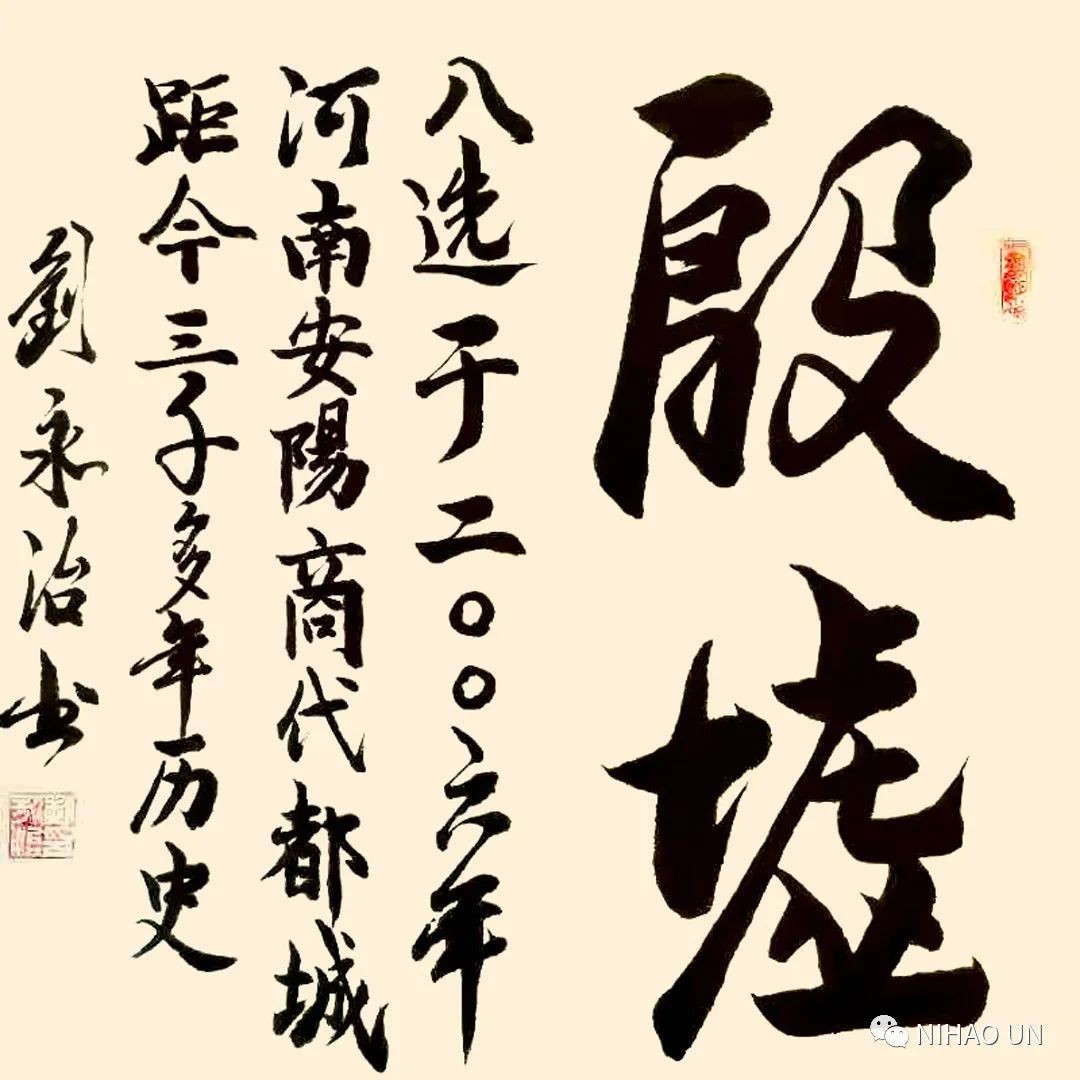 殷墟
入选于二〇〇六年
河南安陽商代都城
距今三千多年历史
劉永治书
NIHAO UN